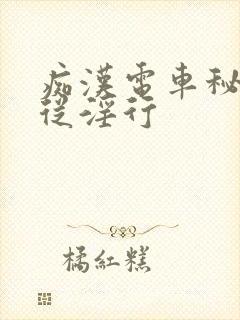 痴漢電車秘
從淫行
橘紅糕